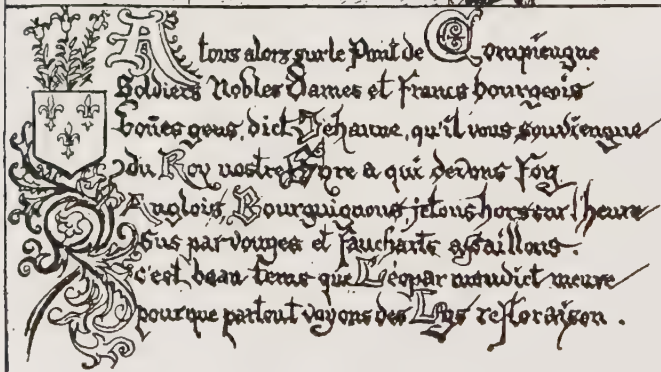 A tous alors sur le Pont de Compiengne
Soldiers Nobles Dames et francs bourgeois
boñes gens, dict Jehanne, qu'il vous souviengne
du Roy nostre Syre a qui devons Foy
Anglois, Bourguignons, jetons hors car l'heure
Sus par vouges et faucharts assaillons.
c'est beau tems que Léopar maudict meure
pour que partout voyons des Lys refloraison.